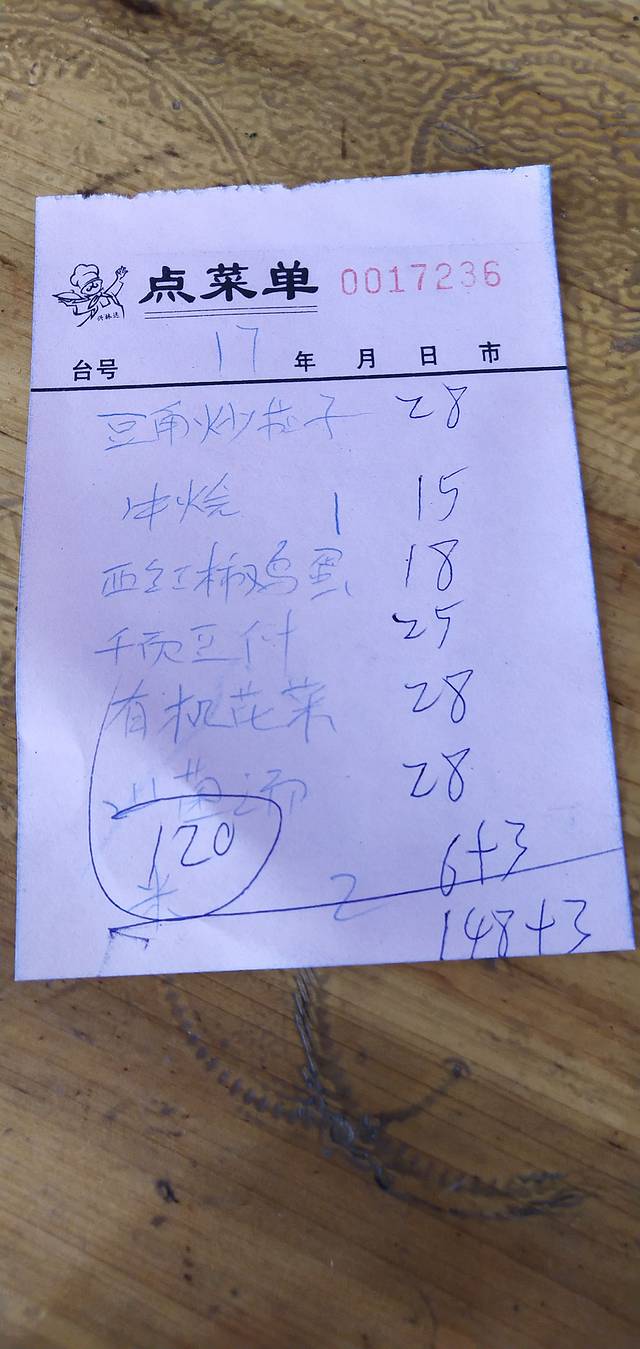 点菜单 0017236
台号 17 年 月 日 市
豆角炒茄子 28
干烧 1 15
西红柿鸡蛋 18
千页豆付 25
有机花菜 28
菌汤 28
120
米 2 6+3
148+3